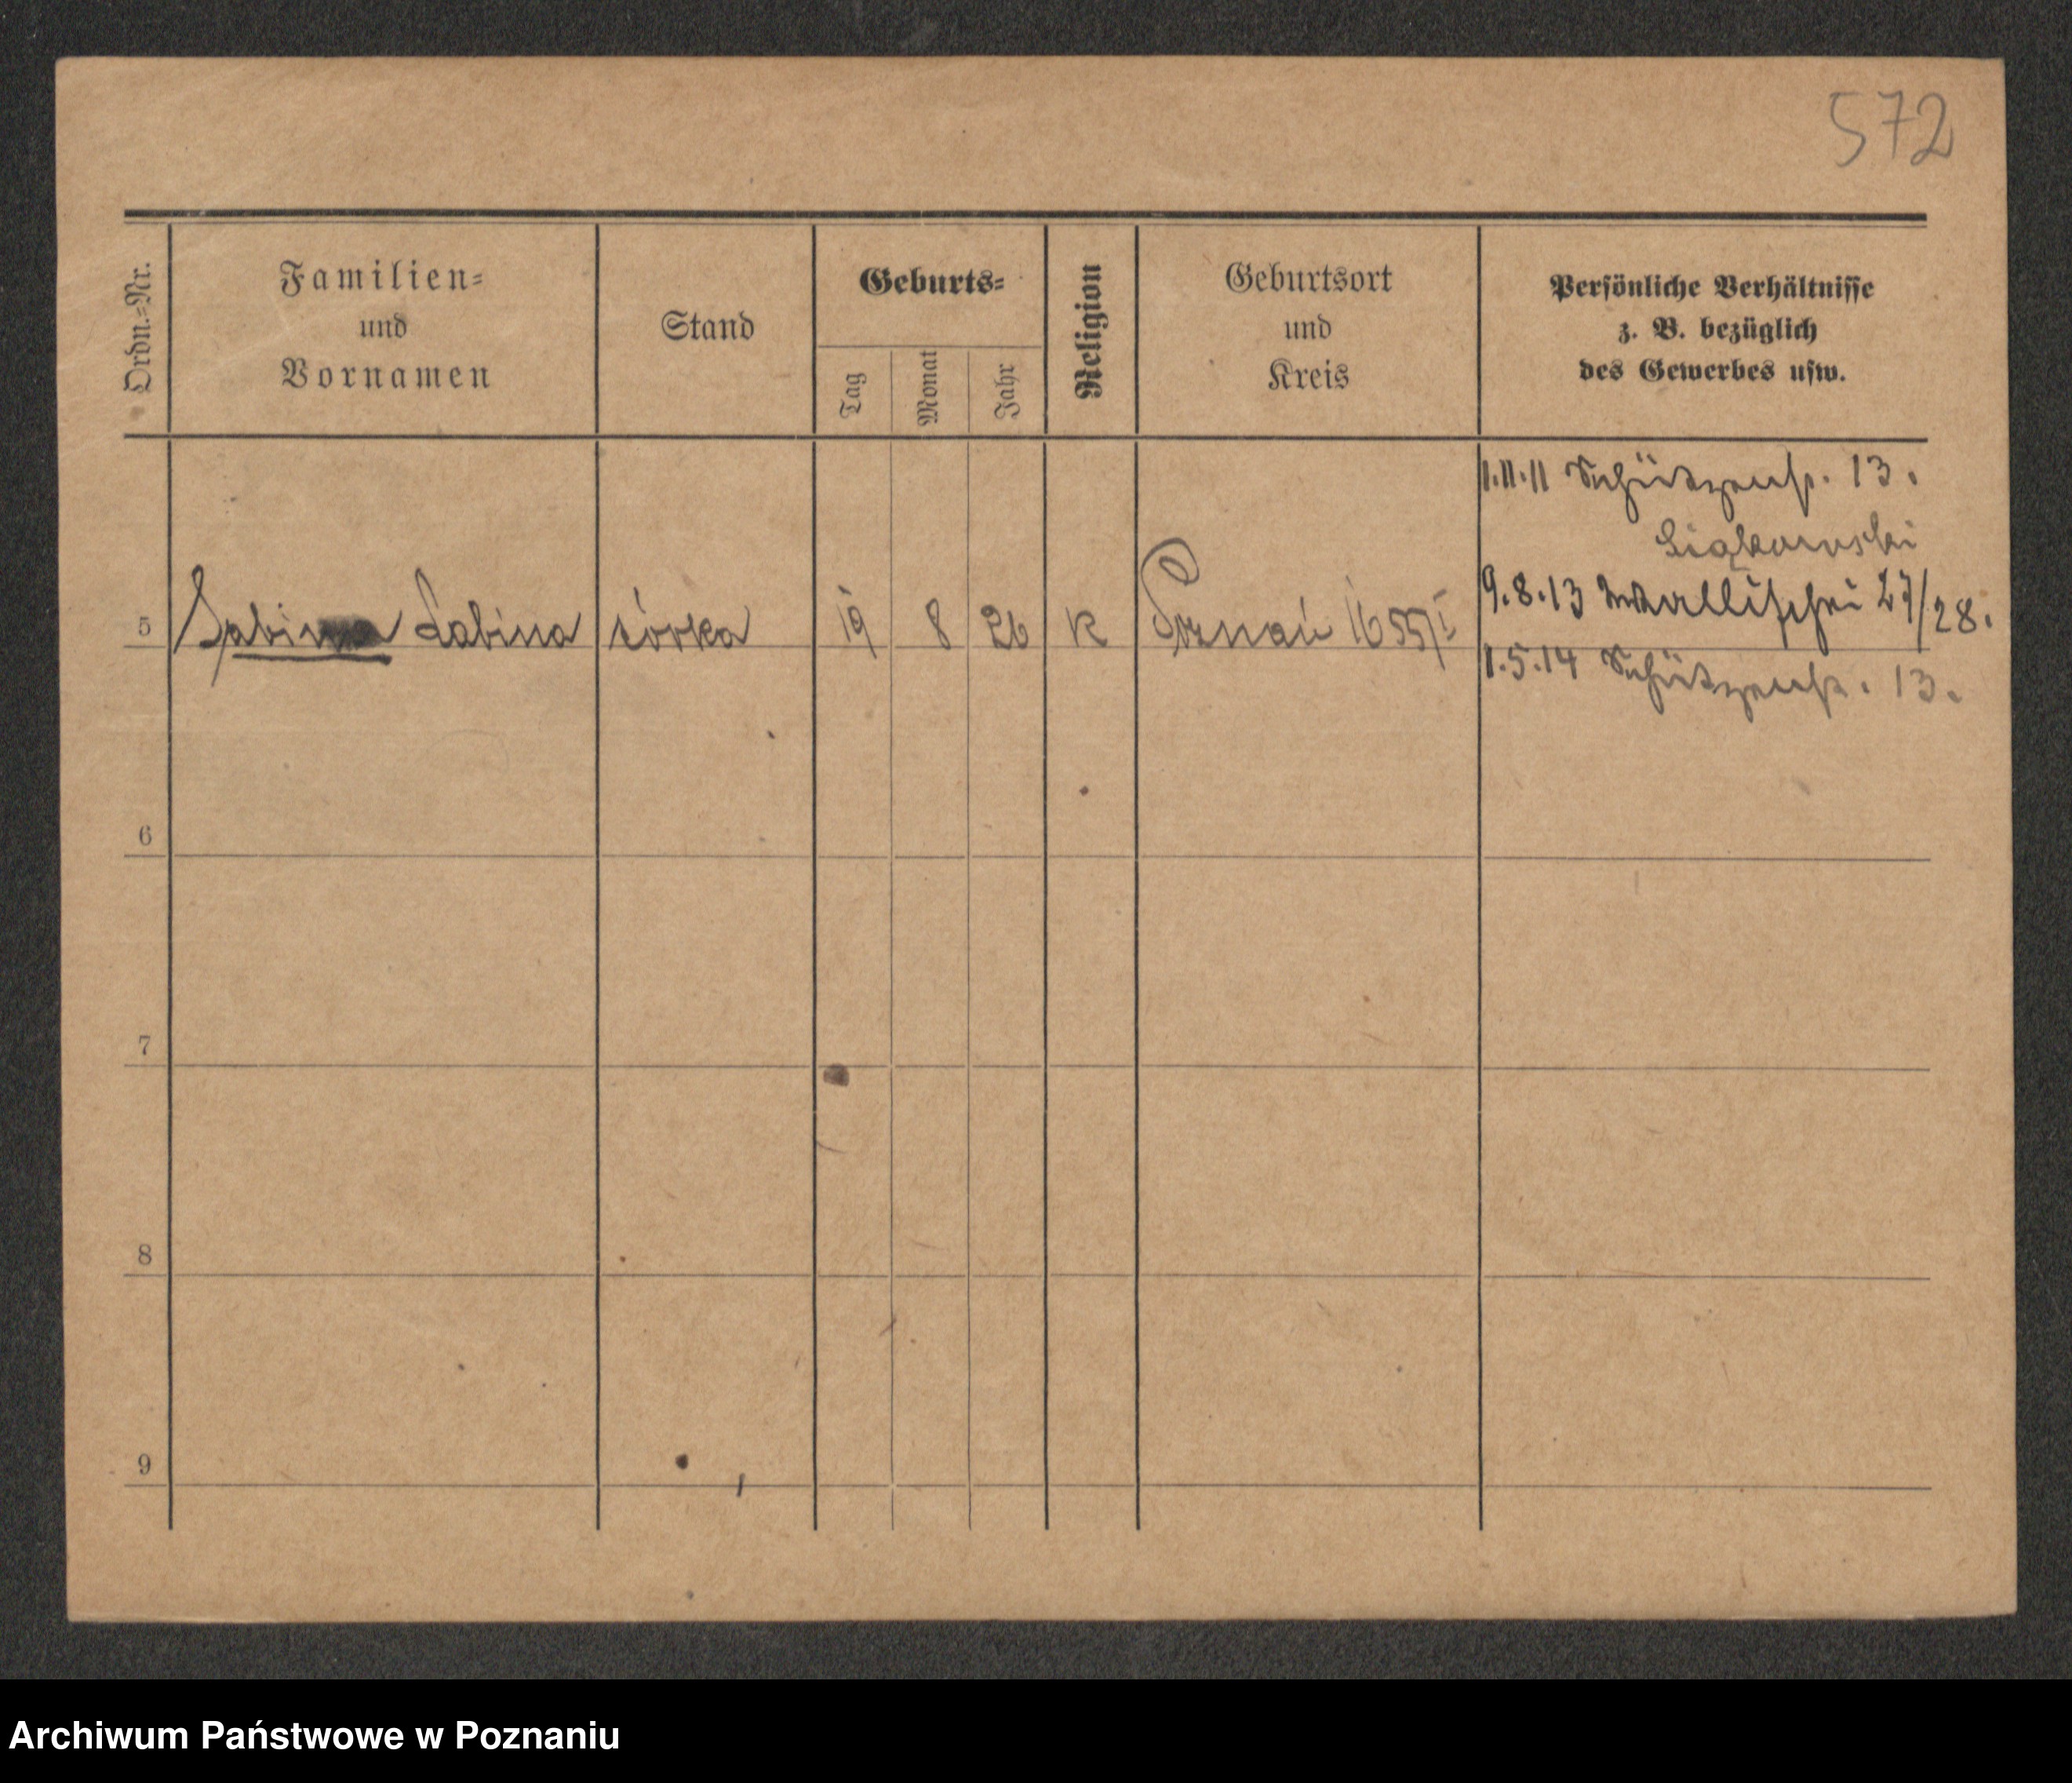 572
Ordn.=Nr.
Familien=
und
Vornamen
Stand
Geburts=
Tag
Monat
Jahr
Religion
Geburtsort
und
Kreis
Persönliche Verhältnisse
z. B. bezüglich
des Gewerbes usw.
1.11.11 Schützenstr. 13.
9.8.13 Wallischei 27/28.
5 Sabina córka 19 8 26 K Poznań 1655/I
1.5.14 Schützenstr. 13.
6
7
8
9
Archiwum Państwowe w Poznaniu